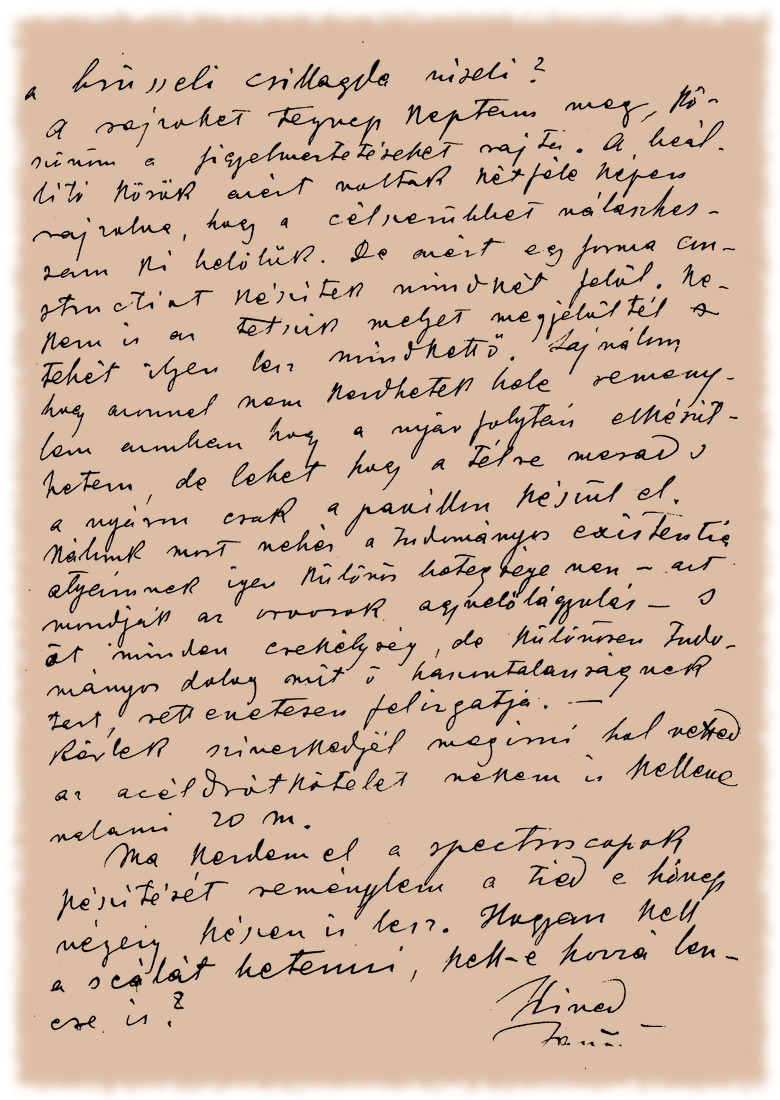 a brüsseli csillagda viseli?
A rajzokat tegnap kaptam meg, kö-
szönöm a figyelmeztetéseket rajta. A beál-
lító körök azért voltak kétféle képen
rajzolva, hogy a célszerűbbet választhas-
sam ki belőlük. De azért egy forma con-
structiot készitek mindkét felül. Ne-
kem is az tetszik melyet megjelöltél s
tehát ilyen lesz mindkettő. Sajnálom
hogy azonnal nem kezdhetek bele remény-
lem azonban hogy a nyár folytán elkészül-
hetem, de lehet hogy a télre marad s
a nyáron csak a pavillon készül el.
Nálunk most nehéz a tudományos existentia
atyámnak igen különös betegsége van – azt
mondják az orvosok agyvelőlágyulás – s
őt minden csekélység, de különösen tudo-
mányos dolog mit ő haszontalanságnak
tart, rettenetesen felizgatja. —
Kérlek sziveskedjél megirni hol vetted
az acéldrótkötelet nekem is kellene
valami 20 m.
Ma kezdem el a spectroscopok
készitését reménylem a tied e hónap
végéig készen is lesz. Hogyan kell
a scálát betenni, kell-e hozzá len-
cse is?
Hived